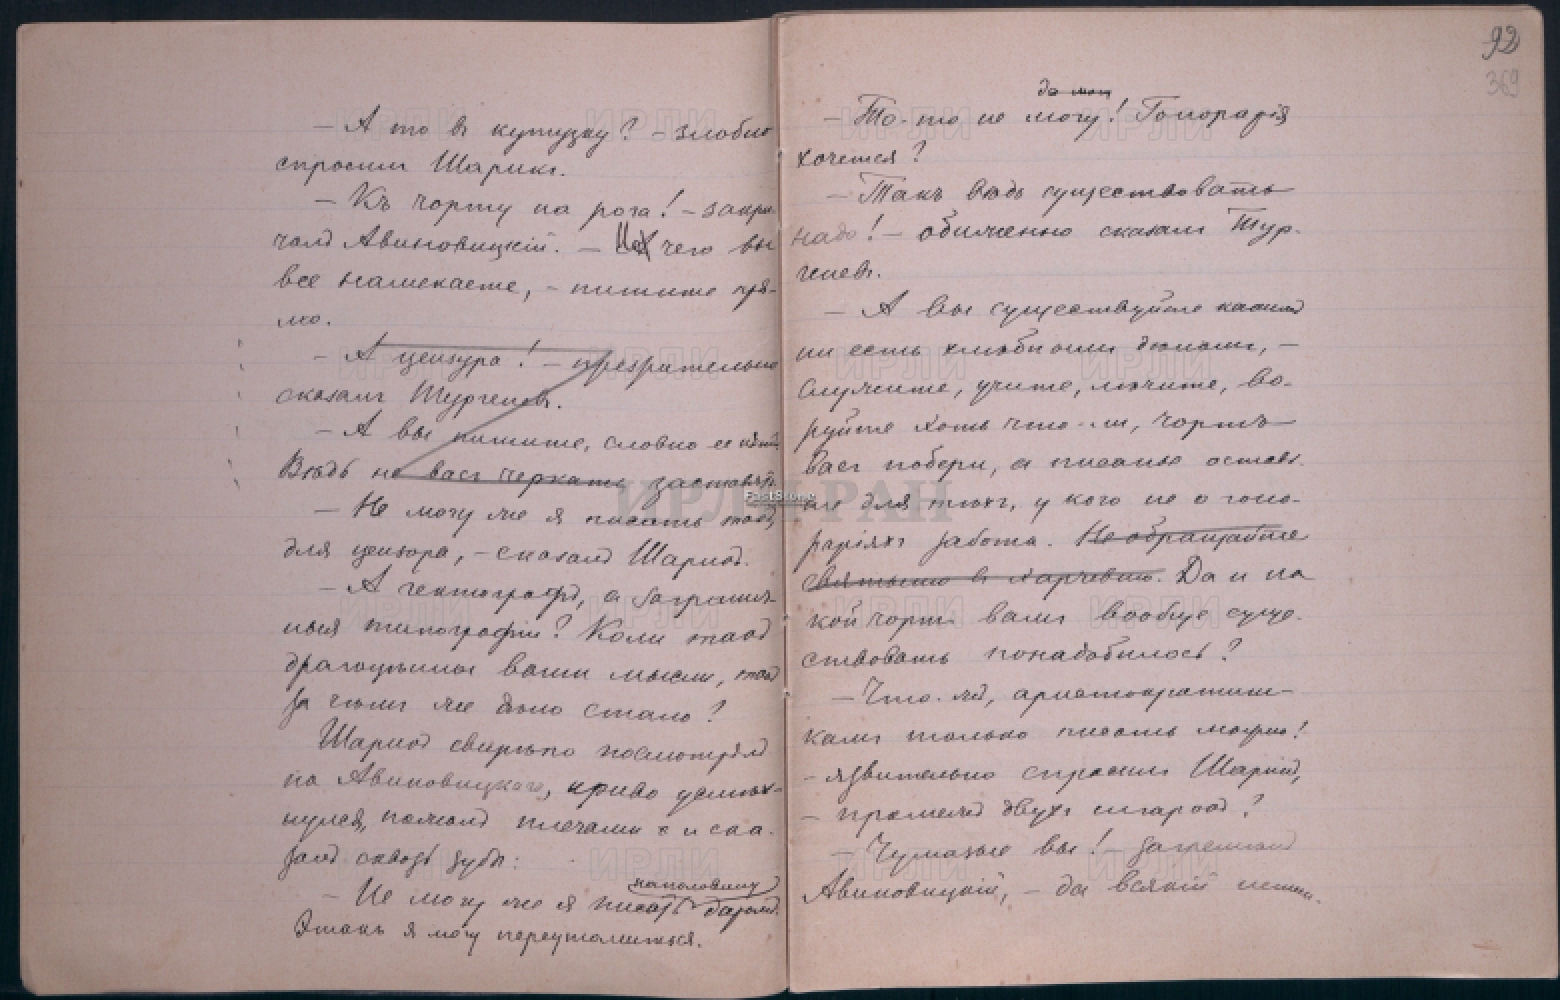 — А то въ кутузку? — злобно
спросилъ Шарикъ.
— Къ чорту на рога! — закри-
чалъ Авиновицкій. — чего вы
все намекаете, — пишите пря-
мо.
— А цензура! — презрительно
сказалъ Тургеневъ.
— А вы пишите, словно ее нѣтъ.
Вѣдь не васъ черкать заставятъ.
— Не могу же я писать
для цензора, — сказалъ Шарикъ.
— А гектографъ, а загранич-
ныя типографіи? Коли такъ
драгоцѣнны ваши мысли, такъ
за чѣмъ же дѣло стало?
Шарикъ свирѣпо посмотрѣлъ
на Авиновицкаго, криво усмѣх-
нулся, пожалъ плечами и ска-
залъ сквозь зубы:
наполовину
— Не могу же я писать даромъ.
Этакъ я могу переутомиться.
92
369
да могу
— То-то не могу! Гонорарія
хочется?
— Такъ вѣдь существовать
надо! — обиженно сказалъ Тур-
геневъ.
— А вы существуйте какимъ
ни есть хлѣбнымъ дѣломъ, —
служите, учите, лѣчите, во-
руйте хоть что-ли, чортъ
васъ побери, а писанье оставь-
те для тѣхъ, у кого не о гоно-
раріяхъ забота. Не обращайте
святыню въ харчевню. Да и на
кой чортъ вамъ вообще суще-
ствовать понадобилось?
— Что-жъ, аристократиш-
камъ только писать можно!
— язвительно спросилъ Шарикъ,
— промежъ двухъ сигаръ?
— Чумазые вы! — загремѣлъ
Авиновицкій, — да всякій
ИРЛИ РАН
FastStone